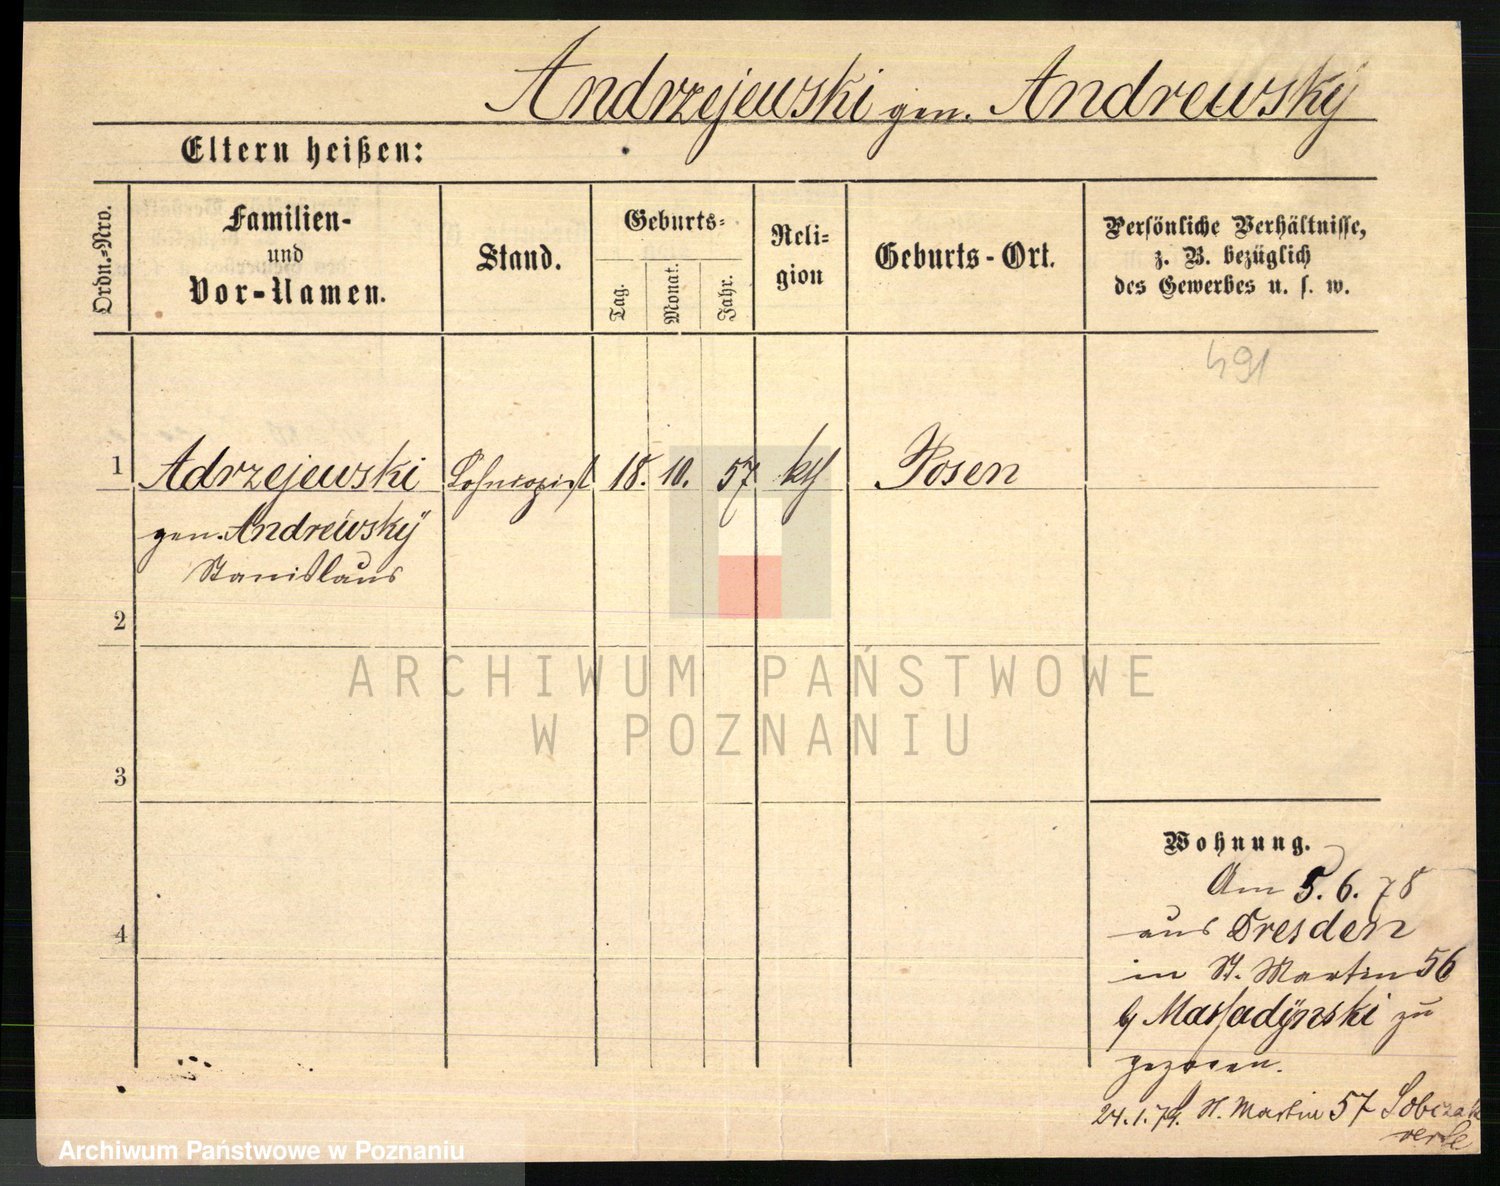 Andrzejewski gen. Andrewsky
Eltern heißen:
Ordn.-Nro.
Familien-
und
Vor-Namen.
Stand.
Geburts-
Tag.
Monat.
Jahr.
Reli-
gion
Geburts-Ort.
Persönliche Verhältnisse,
z. B. bezüglich
des Gewerbes u. s. w.
491
1 Adrzejewski 18. 10. 57 kth Posen
gen. Andrewsky
Stanislaus
2
3
4
Wohnung.
Am 5.6.78
aus Dresden
in St. Martin 56
zu
gezogen.
24.1.79. St. Martin 57 Sobczak
ARCHIWUM PAŃSTWOWE
W POZNANIU
Archiwum Państwowe w Poznaniu